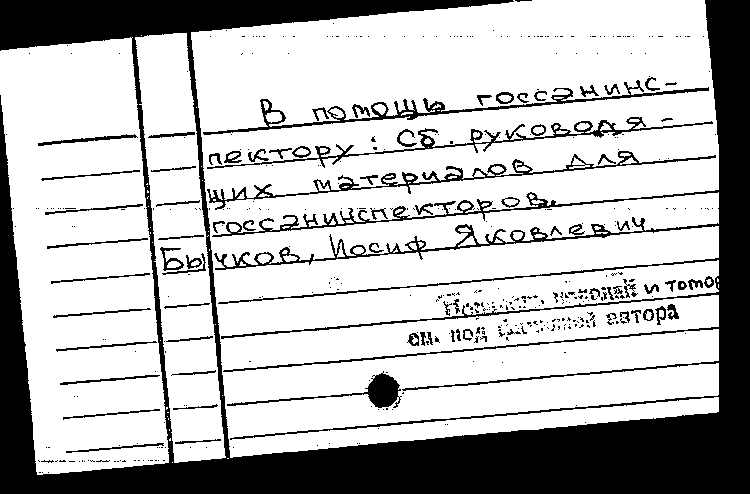 В помощь госсанинс-
пектору: Сб. руководя-
щих материалов для
госсанинспекторов.
Бычков, Иосиф Яковлевич.
и томов
см. под фамилией автора